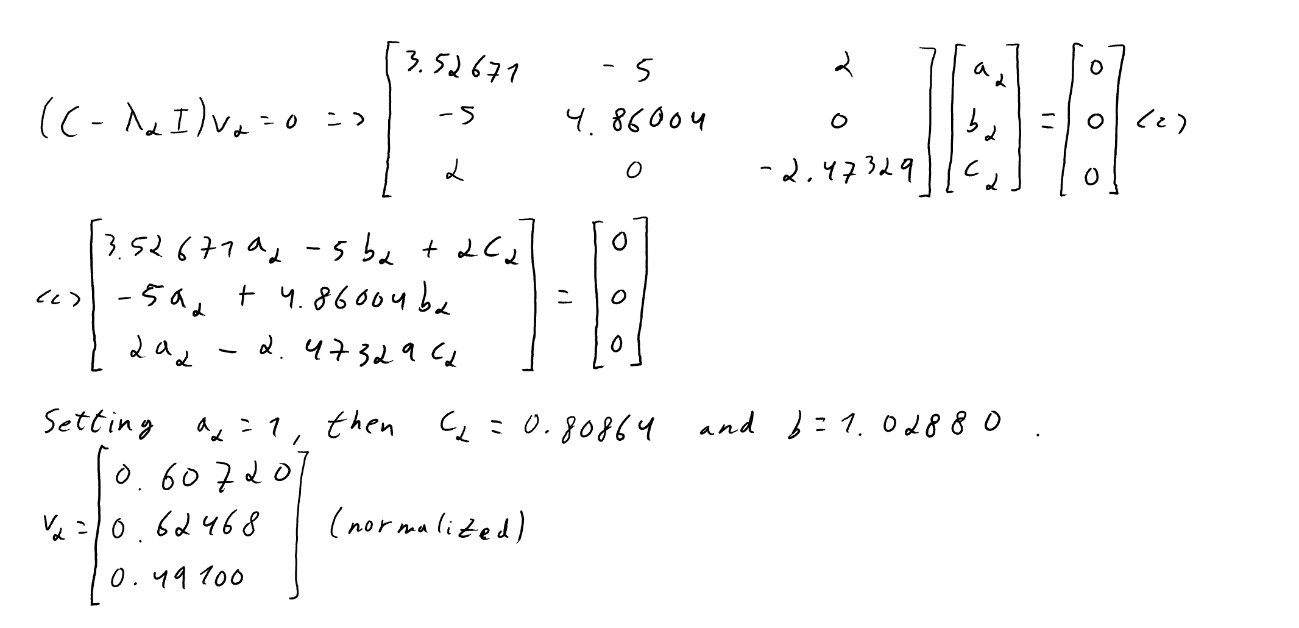 (C - λ₂I)v₂ = 0 => [3.52671 -5 2; -5 4.86004 0; 2 0 -2.47329] [a₂; b₂; c₂] = [0; 0; 0] <=>
<=> [3.52671a₂ - 5b₂ + 2c₂; -5a₂ + 4.86004b₂; 2a₂ - 2.47329c₂] = [0; 0; 0]
Setting a₂ = 1, then c₂ = 0.80864 and b = 1.02880.
v₂ = [0.60720; 0.62468; 0.49100] (normalized)